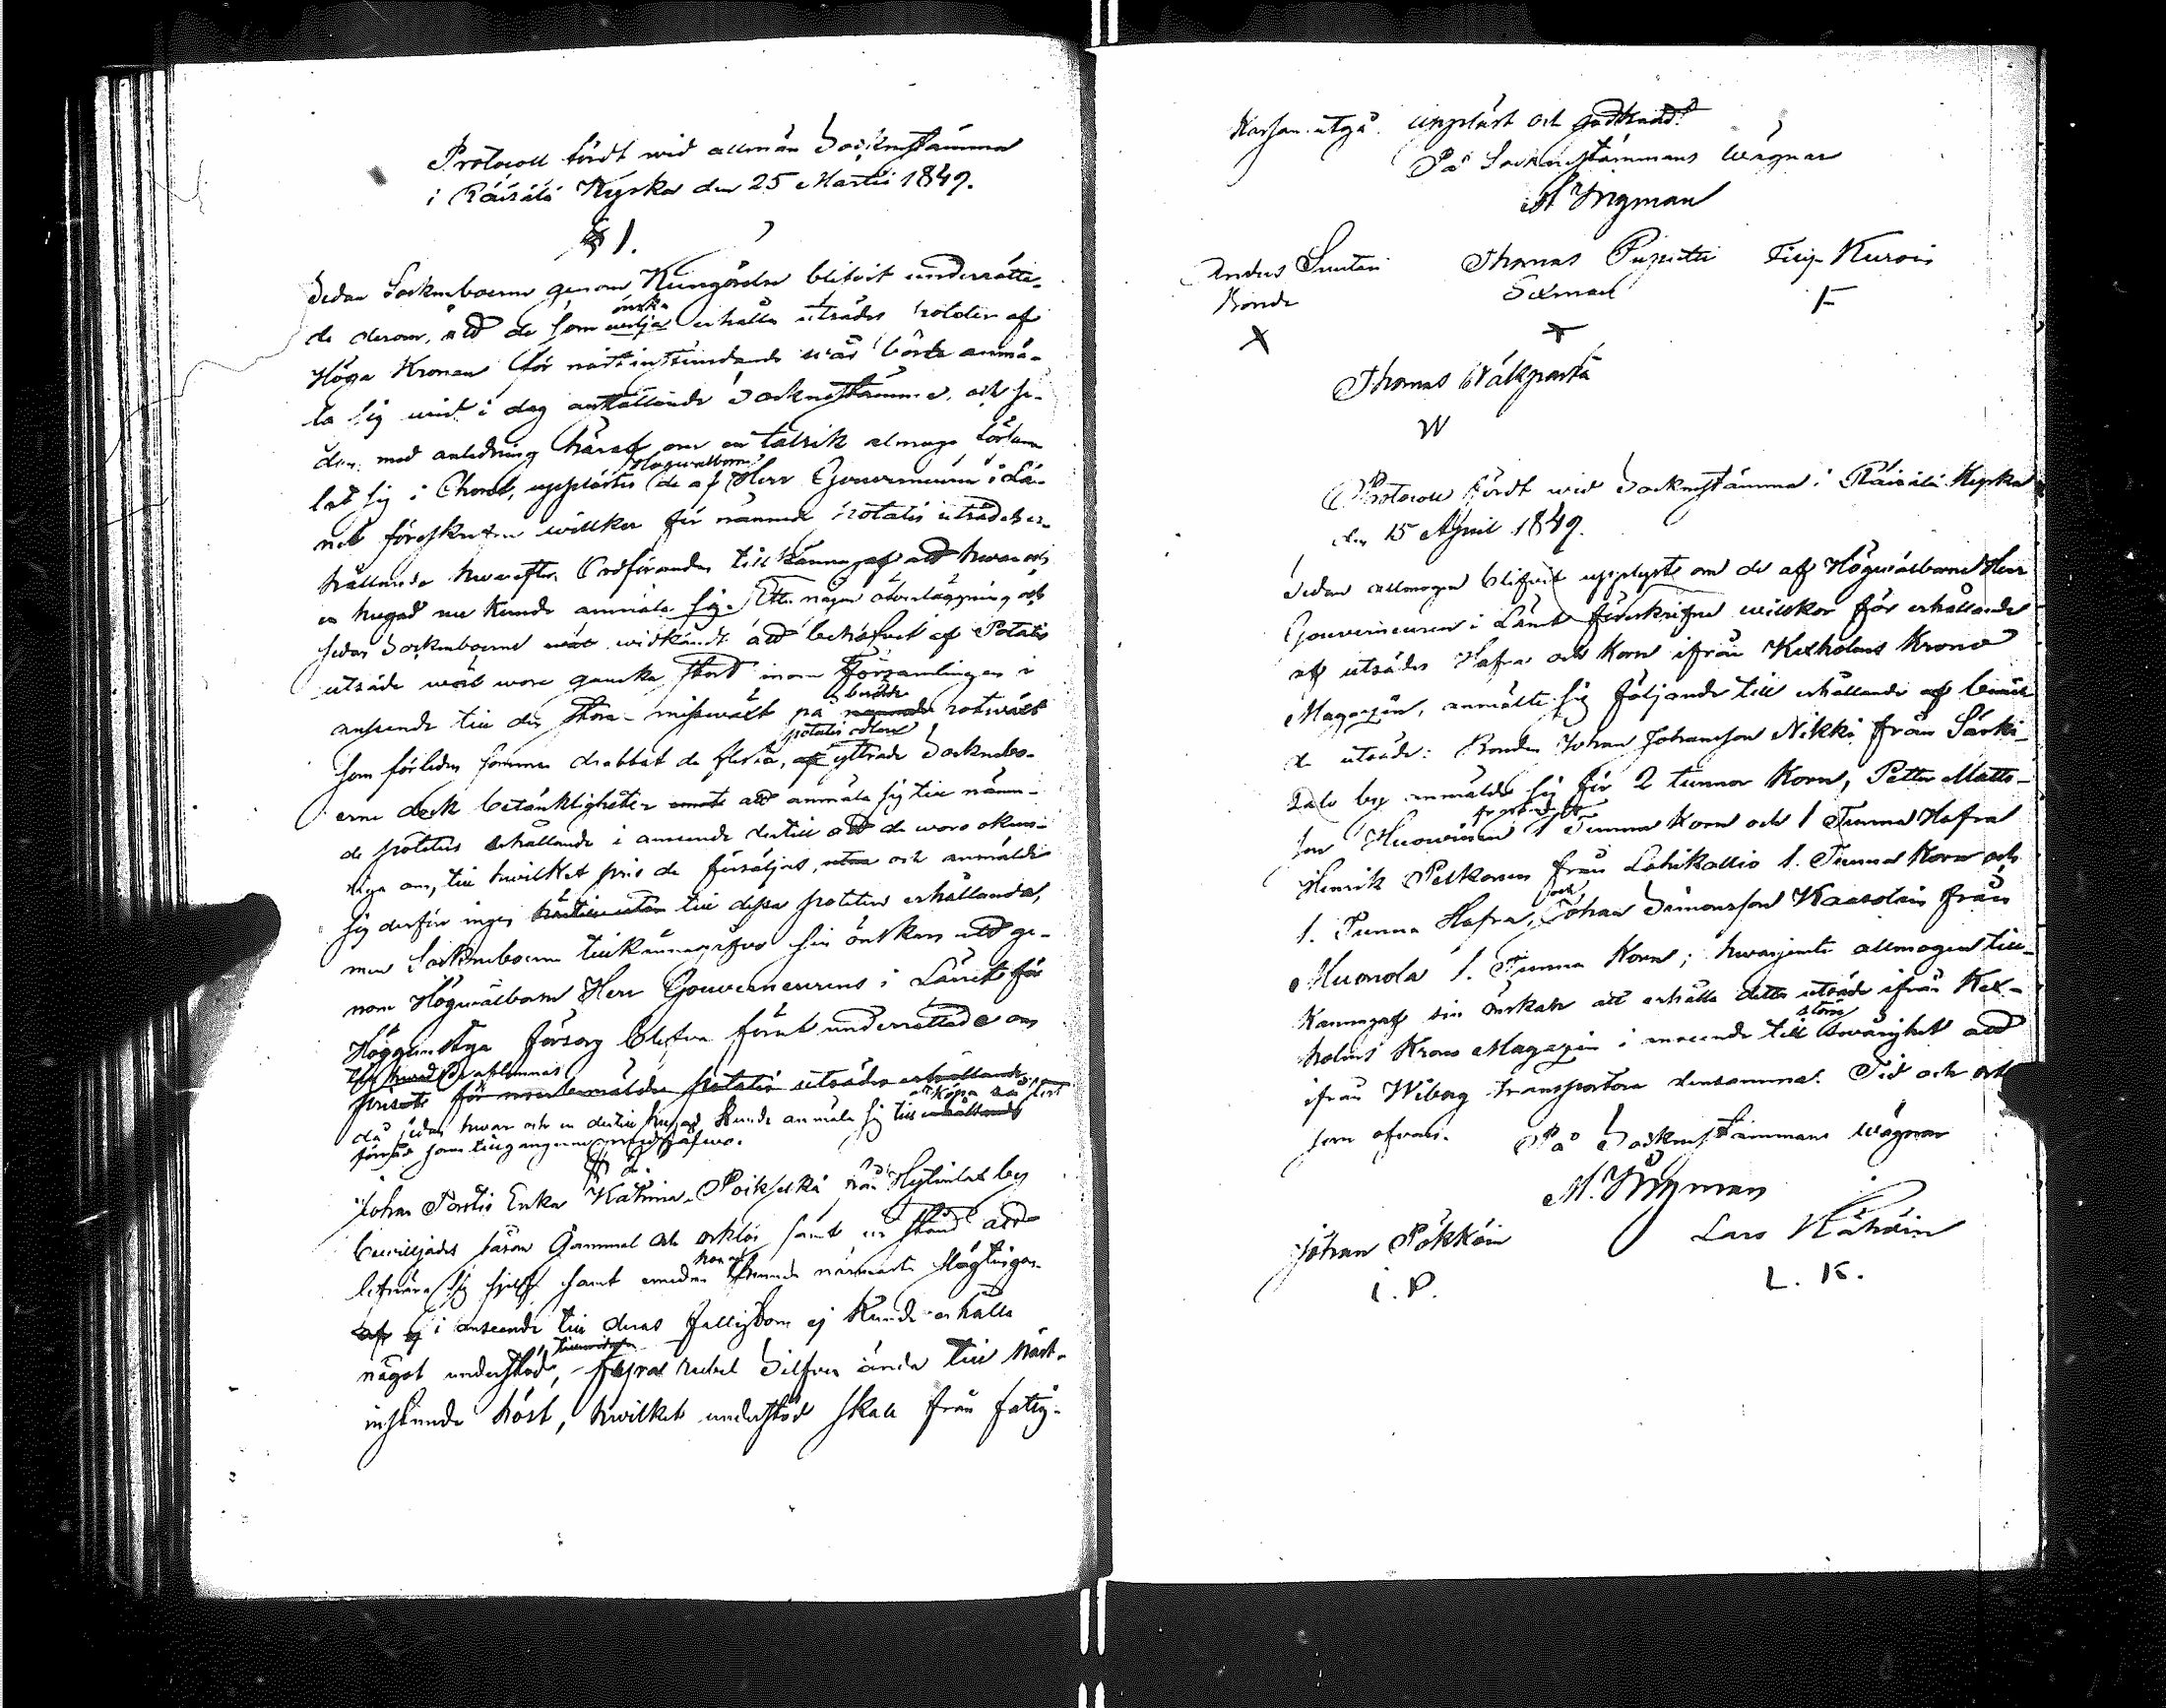 Protocoll fördt wid allmän Socknestämma
i Räisälä Kyrka den 25 Martii 1849.
§ 1.
Sedan Sockneboerne genom Kungörelse blifvit underrätta-
de derom, att de som önska erhålla utsädes potäter af
Höga Kronan för nästinstundande wår borde anmä-
la sig wid i dag anställande Socknestämma, och se-
dan med anledning häraf en talrik almoge församm
lat sig i Choret, upplästes de af Högwälborne Herr Gouverneuren i Lä-
net föreskrifna willkor för nämnde potatis utsädes er-
hållande hwarefter Ordföranden tillkännagaf att hwar och
en hugad nu kunde anmäla sig. Efter någon öfwerläggning och
sedan Sockneboerne widkändt att behofwet af Potatis
utsäde wore ganska stort inom Församlingen i
anseende till den stora misswäxt på berörde rotwäxt
som förliden sommar drabbat de flesta potatis odlare, yttrade Sockneb-
erne dock betänkligheter att anmäla sig till nämn-
de potäters erhållande i anseende dertill att de woro okun-
niga om, till hwilket pris de försäljas, och anmälde
sig derföre ingen till dessa potäters erhållande,
men Sockneboerne tillkännagifwo sin önskan att ge-
nom Högwälborne Herr Gouverneurens i Länet för
Höggunstiga försorg blifwa förut underrättade om
priset
då sedan hwar och en dertill hugad kunde anmäla sig till att köpa så stort
förråd som tillgångarne medgåfwo.
§ 2.
Johan Porttis Enka Katrina Poikselkä från Hytinlax by
bewiljades såsom Gammal och orklös samt ur stånd att
lifnära sig sjelf samt emedan hennes närmaste Slägtingar
i anseende till deras fattigdom ej kunde erhålla
något understöd, fyra rubel Silfver ända till näst-
instundande höst, hwilket understöd skall från fattig-
Kassan utgå. Uppläst och godkändt
På Socknestämmans wägnar
M. Wigman
Anders Suutari Thomas Pupetti Filip Kurois
Bonde Sexman F
X X
Thomas Wäkiparta
W
Protocoll fördt wid Socknestämma i Räisälä Kyrka
den 15 April 1849.
Sedan allmogen blifvit upplyste om de af Högwälborne Herr
Gouverneuren i Länet föreskrifne willkor för erhållande
af utsädes Hafra och Korn ifrån Kexholms Krono
Magazin, anmälte sig följande till erhållande af bemäl
te utsäde: Bonden Johan Johansson Nikki från Särki-
salo by anmälde sig för 2 tunnor Korn, Petter Matts-
son Huowinen 1 Tunna Korn och 1 Tunna Hafra
Henrik Pelkonen från Lahikallio 1. Tunna Korn och
1. Tunna Hafra, och Johan Simonsson Kaasolain från
Muonola 1. Tunna Korn; hwarjemte allmogen till-
kännagaf sin önskan att erhålla detta utsäde ifrån Kex-
holms Krono Magazin i anseende till större swårighet att
ifrån Wiborg transportera densamma. Tid och ort
som ofvan. På Socknestämmans wägnar
M. Wigman
Johan Pökköin Lars Kähöin
I. P. L. K.